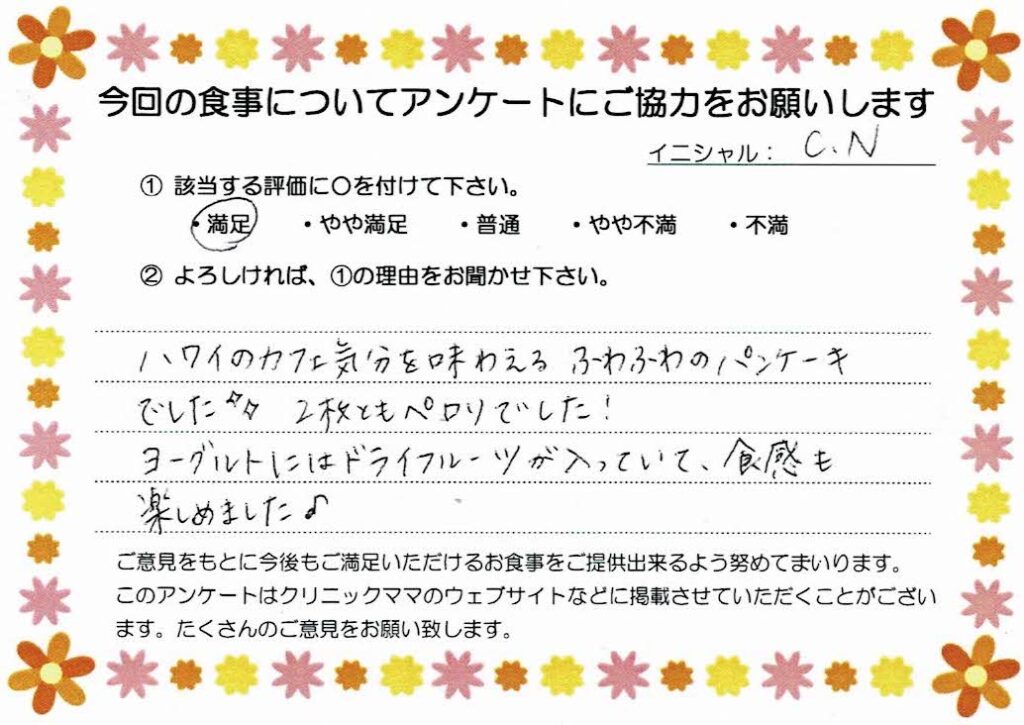 今回の食事についてアンケートにご協力をお願いします
イニシャル： C.N
① 該当する評価に〇を付けて下さい。
・満足 ・やや満足 ・普通 ・やや不満 ・不満
② よろしければ、①の理由をお聞かせ下さい。
ハワイのカフェ気分を味わえる ふわふわのパンケーキ
でした 2枚ともペロリでした!
ヨーグルトにはドライフルーツが入っていて、食感も
楽しめました♪
ご意見をもとに今後もご満足いただけるお食事をご提供出来るよう努めてまいります。
このアンケートはクリニックママのウェブサイトなどに掲載させていただくことがござい
ます。たくさんのご意見をお願い致します。